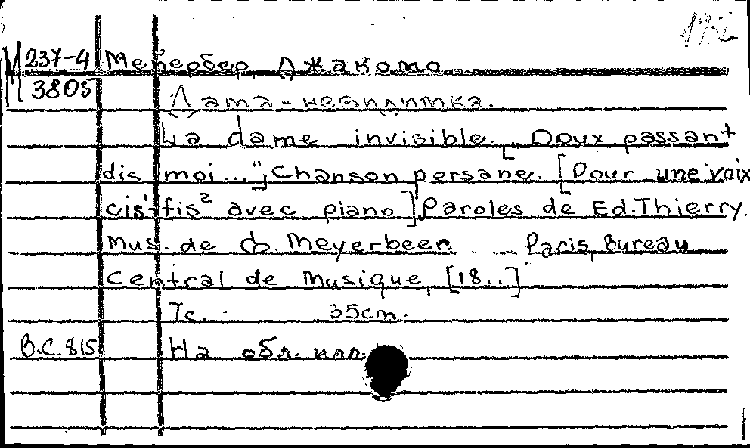 М 237-4 Мейербер Джакомо
3805
Дама-невидимка.
La dame invisible. ["Doux passant
dis moi..."] Chanson persane. [Pour une voix
cis¹-fis² avec piano] Paroles de Ed. Thierry.
Mus. de G. Meyerbeer Paris, Bureau
Central de Musique, [18..]
7с. 35cm.
В.С. 815 На обл. илл.